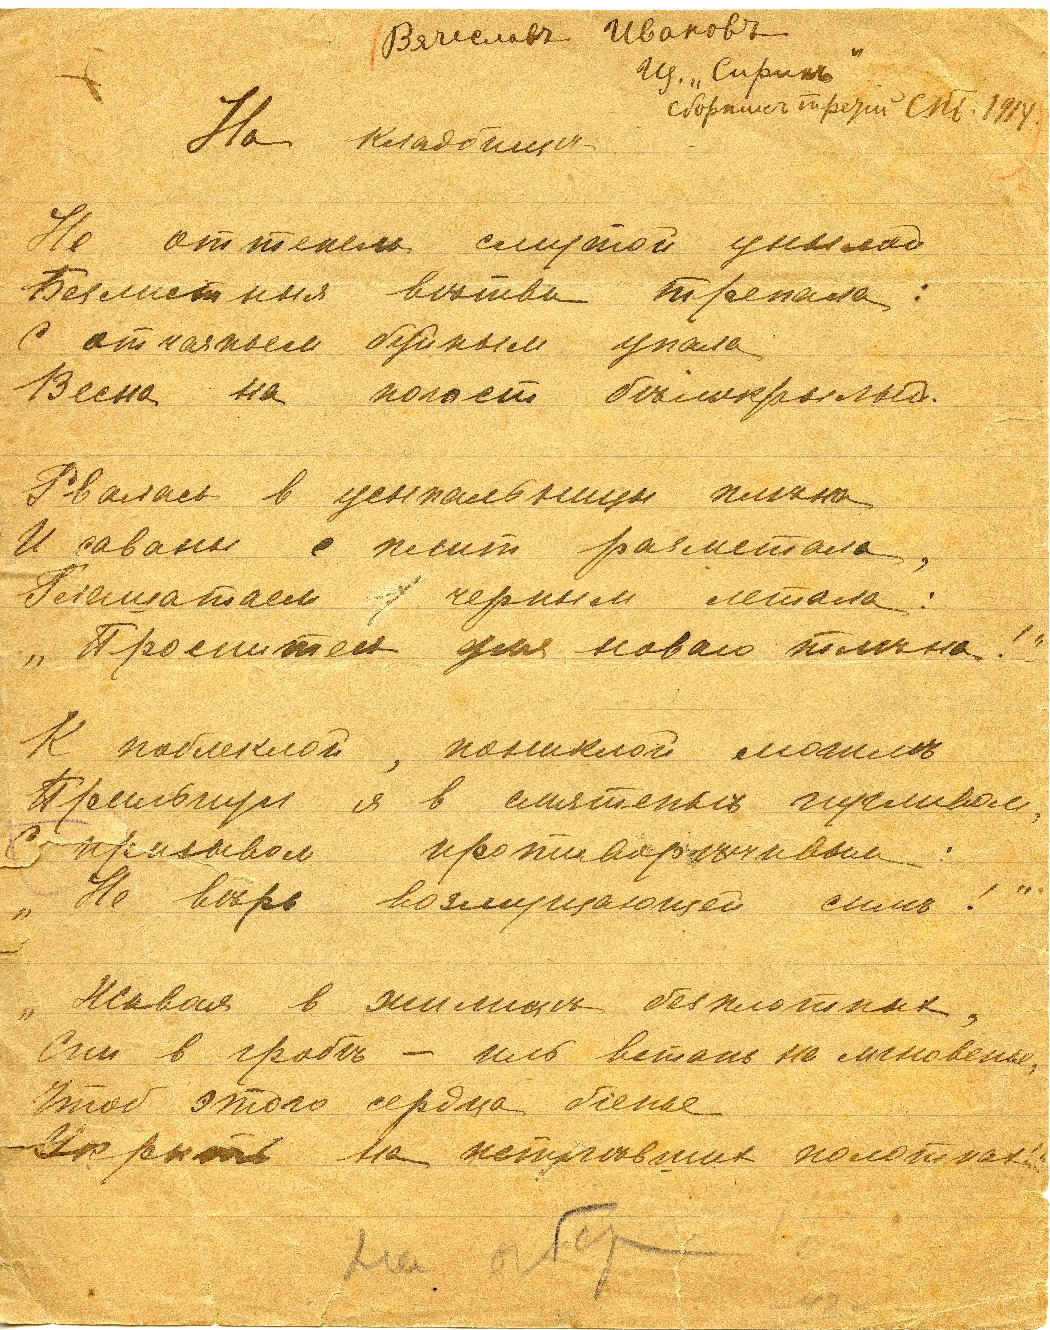 Вячеславъ Ивановъ
Изд. „Сиринъ"
сборникъ третій СПб. 1914.
На кладбищѣ
Не оттепель смутой унылой
Безлистныя вѣтви трепала:
С отчаяньем буйным упала
Весна на погост бѣлокрылый.
Рвалась в усыпальницы плѣна
И саваны с плит разметала,
Глашатаем черным летала:
„Проснитесь для новаго тлѣна!"
К поблеклой, пониклой могилѣ
Прильнул я в смятеньи
С призывом противорѣчивым:
„Не вѣрь возмущающей силѣ!"
„Живая в жилищѣ безплотных,
Спи в гробѣ – иль встань на мгновенье,
Чтоб этого сердца біенье
Укрыть на истлѣвших полотнах!"
На обор